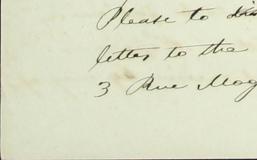 Please to
letter to the
3 Rue Mag